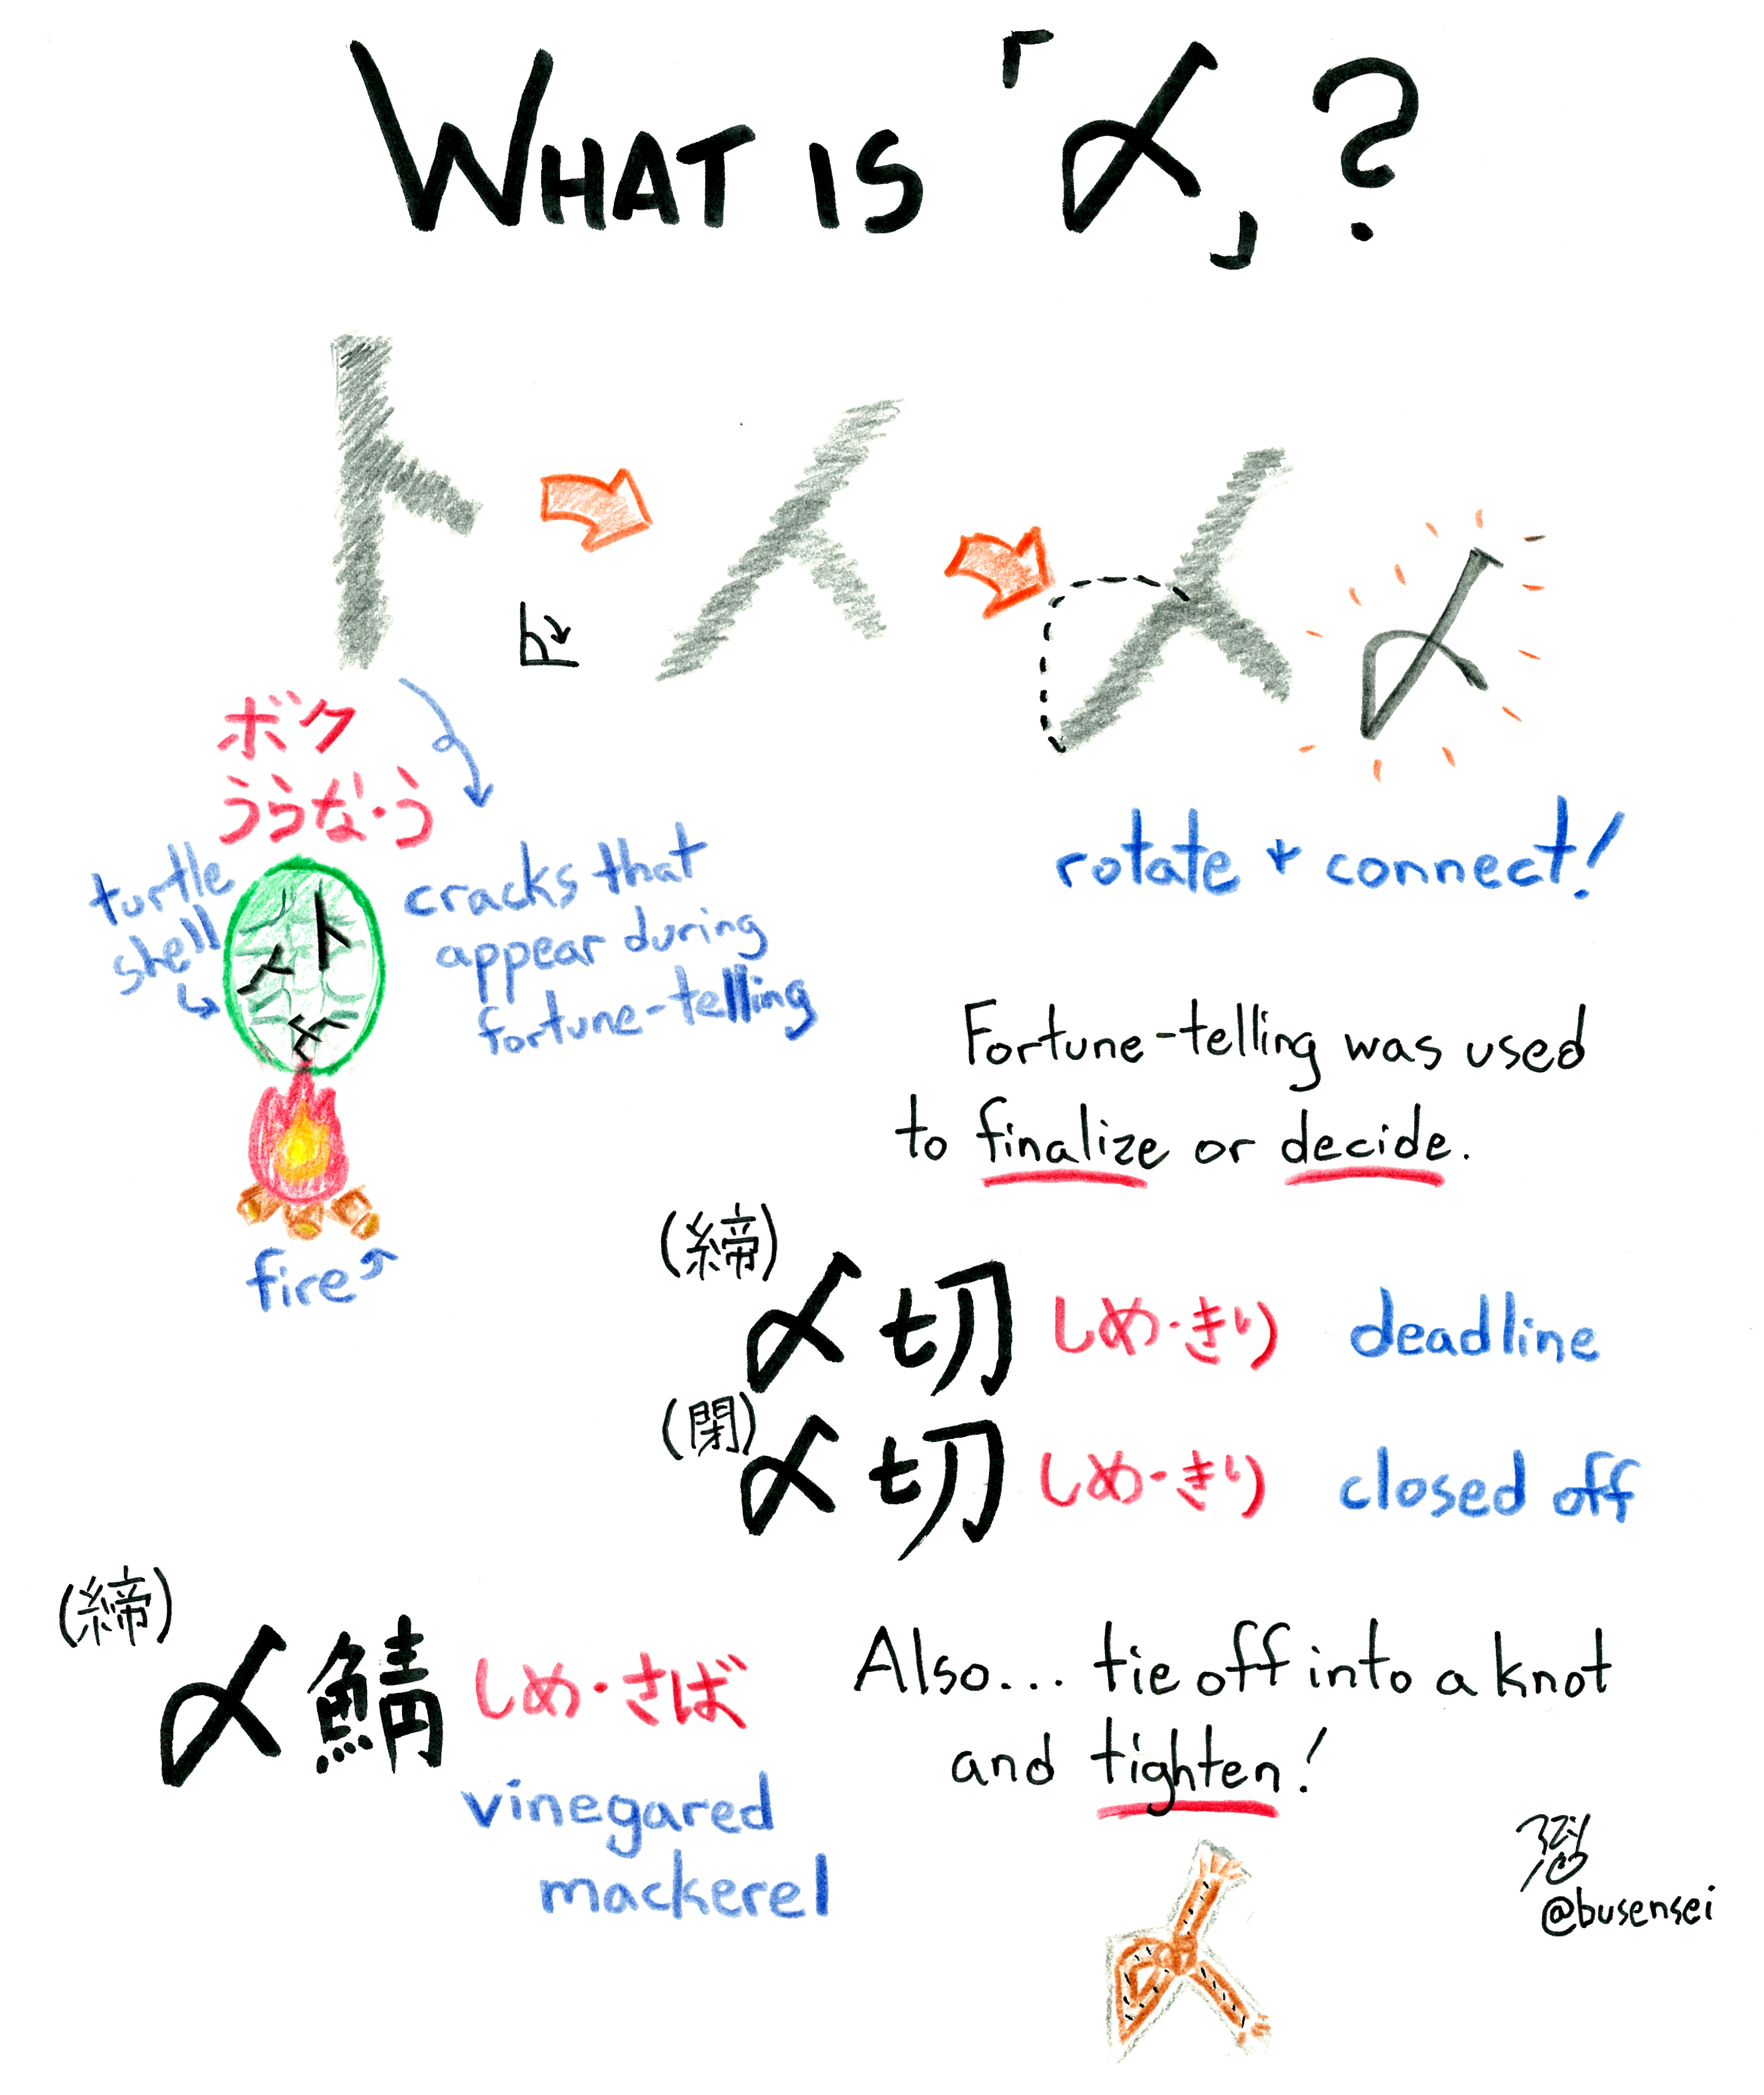 WHAT IS 「〆」?
卜
ボク
うらな・う
turtle
shell
cracks that
appear during
fortune-telling
fire
〆
rotate + connect!
Fortune-telling was used
to finalize or decide.
(締)
〆切 しめ・きり deadline
(閉)
〆切 しめ・きり closed off
(締)
〆鯖 しめ・さば
vinegared
mackerel
Also... tie off into a knot
and tighten!
@busensei